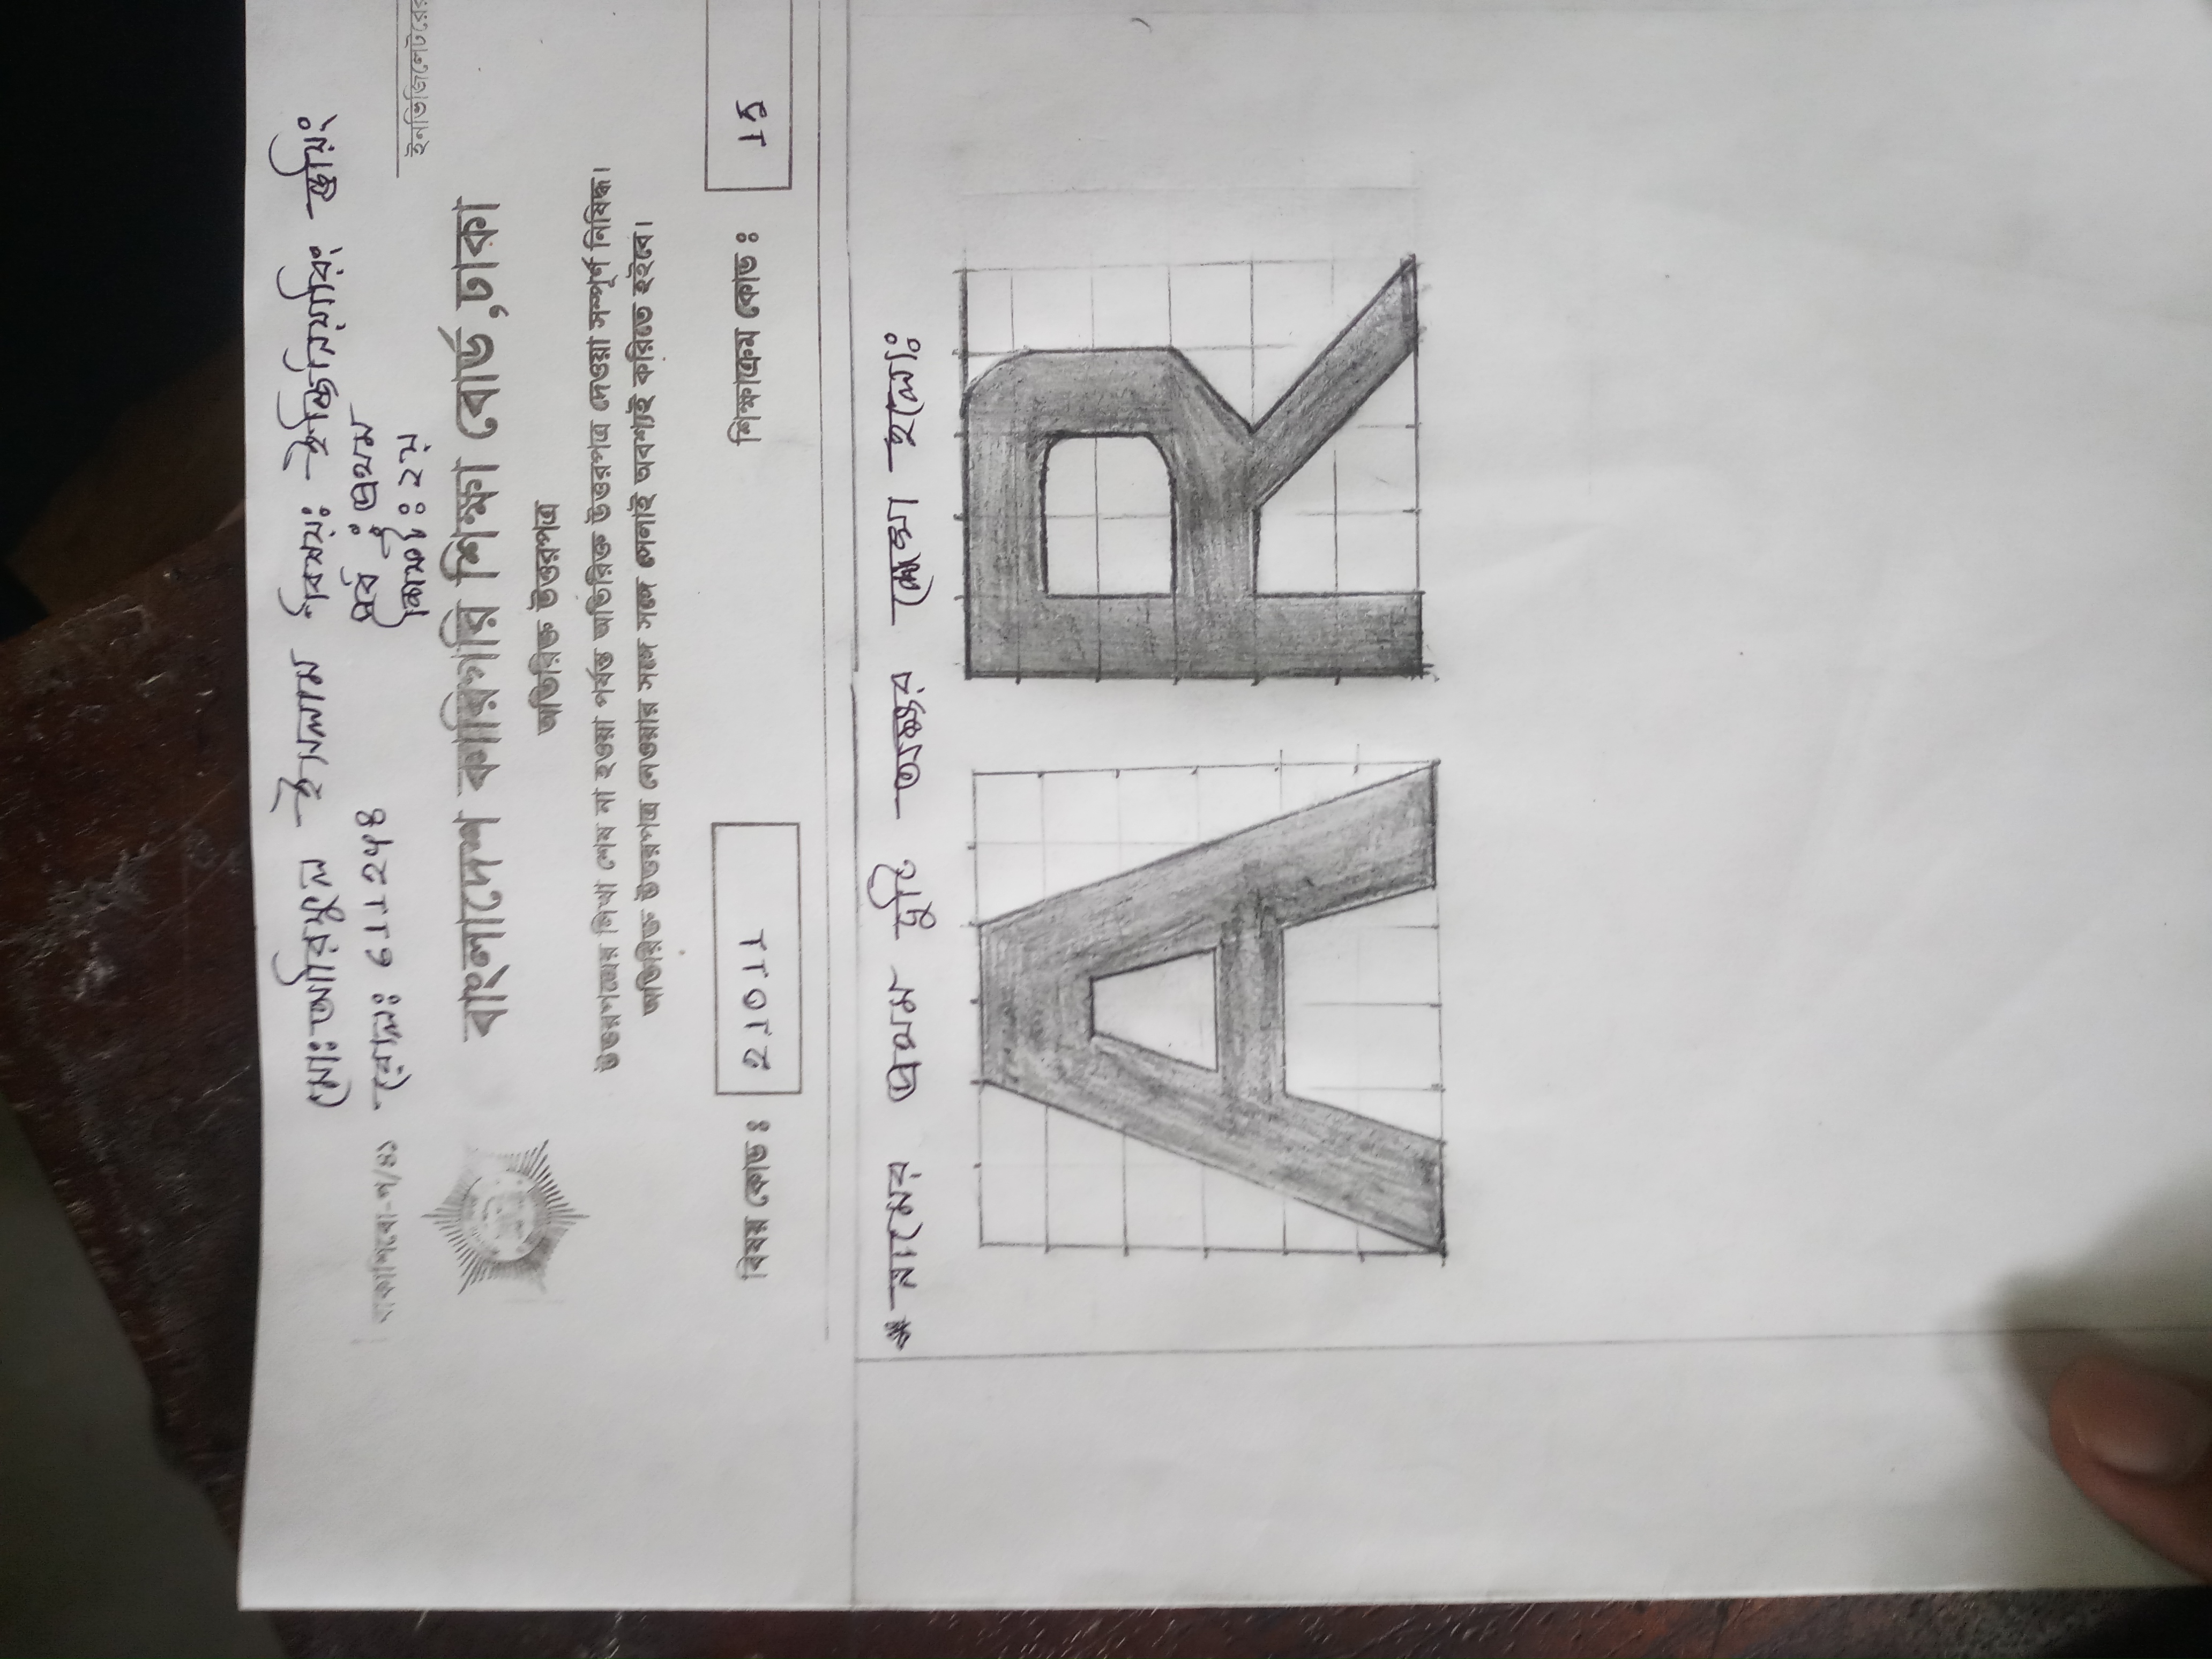 মোঃ আরিফুল ইসলাম বিষয়ঃ ইঞ্জিনিয়ারিং ড্রয়িং
পর্ব : প্রথম
বাকাশিবো-প/৪১ রোলঃ 611248
শিফট : ২য়
ইনভিজিলেটরের
বাংলাদেশ কারিগরি শিক্ষা বোর্ড,ঢাকা
অতিরিক্ত উত্তরপত্র
উত্তরপত্রের লিখা শেষ না হওয়া পর্যন্ত অতিরিক্ত উত্তরপত্র দেওয়া সম্পূর্ণ নিষিদ্ধ।
অতিরিক্ত উত্তরপত্র নেওয়ার সঙ্গে সঙ্গে সেলাই অবশ্যই করিতে হইবে।
বিষয় কোড ঃ 21011 শিক্ষাক্রম কোড ঃ 15
* নামের প্রথম দুটি অক্ষর লেখা হলোঃ
A R